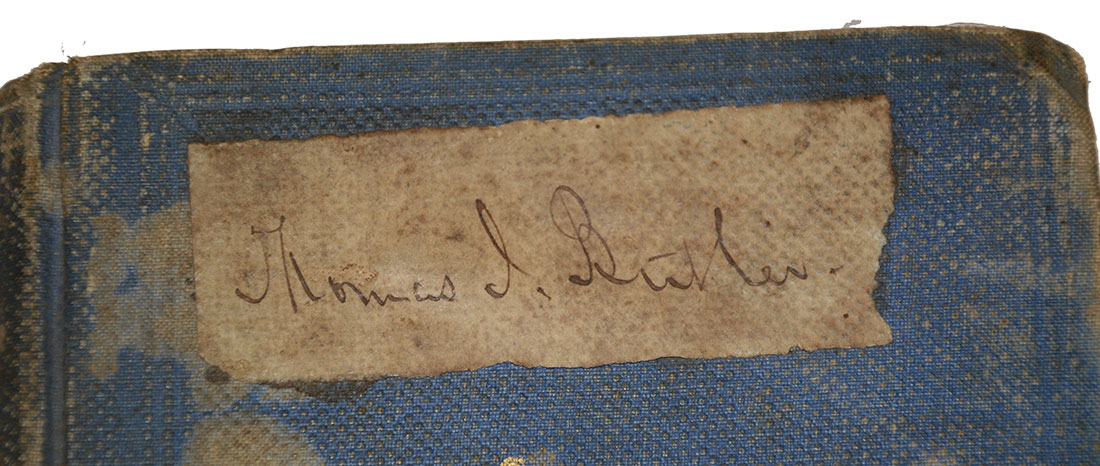 Thomas I. Butler.